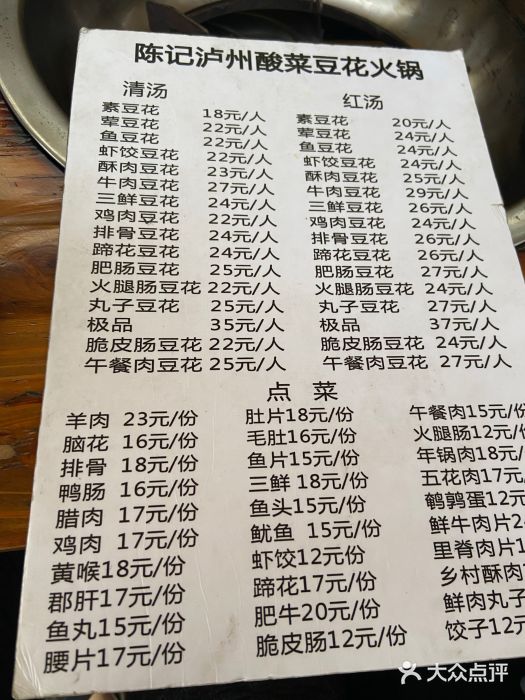 陈记泸州酸菜豆花火锅
清汤
素豆花 18元/人
荤豆花 22元/人
鱼豆花 22元/人
虾饺豆花 22元/人
酥肉豆花 23元/人
牛肉豆花 27元/人
三鲜豆花 24元/人
鸡肉豆花 22元/人
排骨豆花 24元/人
蹄花豆花 24元/人
肥肠豆花 25元/人
火腿肠豆花 22元/人
丸子豆花 25元/人
极品 35元/人
脆皮肠豆花 22元/人
午餐肉豆花 25元/人
红汤
素豆花 20元/人
荤豆花 24元/人
鱼豆花 24元/人
虾饺豆花 24元/人
酥肉豆花 25元/人
牛肉豆花 29元/人
三鲜豆花 26元/人
鸡肉豆花 24元/人
排骨豆花 26元/人
蹄花豆花 26元/人
肥肠豆花 27元/人
火腿肠豆花 24元/人
丸子豆花 27元/人
极品 37元/人
脆皮肠豆花 24元/人
午餐肉豆花 27元/人
点菜
羊肉 23元/份
脑花 16元/份
排骨 18元/份
鸭肠 16元/份
腊肉 17元/份
鸡肉 17元/份
黄喉18元/份
郡肝17元/份
鱼丸15元/份
腰片17元/份
肚片18元/份
毛肚16元/份
鱼片15元/份
三鲜 18元/份
鱼头15元/份
鱿鱼 15元/份
虾饺12元/份
蹄花17元/份
肥牛20元/份
脆皮肠12元/份
午餐肉15元/份
火腿肠12元/份
年锅肉18元/
五花肉17元/
鹌鹑蛋12元/
鲜牛肉片2
里脊肉片1
乡村酥肉
鲜肉丸子
饺子12元/
大众点评